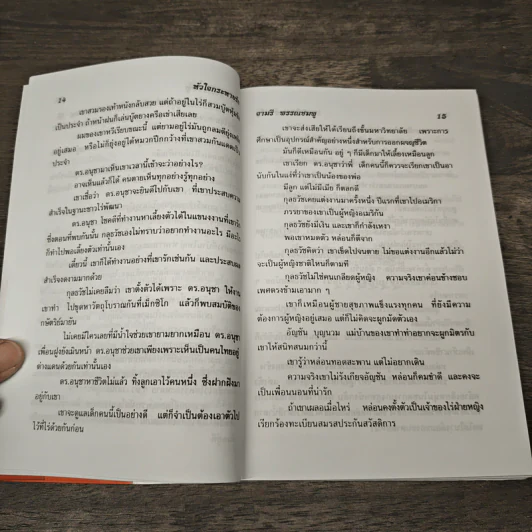 14
หัวใจกระดาษ
เขาสวมรองเท้าหนังกลับสวย แต่ถ้าอยู่ในไร่ก็สวมบู๊ตหุ้ม
เป็นประจำ ถ้าหน้าฝนก็เล่นบู๊ตยางหรือเช่าเสียเลย
ผมของเขาหวีเรียบขณะนี้ แต่ยามอยู่ไร่มันถูกลมตียุ่ง
อยู่เสมอ หรือไม่ก็ยุ่งอยู่ใต้หมวกปีกกว้างที่เขาสวมกันแดด
ประจำ
ดร.อนุชามาเห็นเขาเวลานี้เข้าจะว่าอย่างไร?
อาจเห็นแล้วก็ได้ คนตายเห็นทุกอย่างรู้ทุกอย่าง
เขาเชื่อว่า ดร.อนุชาจะยินดีไปกับเขา ที่เขาประสบความ
สำเร็จในฐานะชาวไร่พัฒนา
ดร.อนุชา โชคดีที่ทำงานหาเลี้ยงตัวได้ในแขนงงานที่เขารัก
ซึ่งตอนที่พบกันนั้น กุลธวัชเองไม่ทราบว่าอยากทำงานอะไร มีอะไร
ก็ทำไปพอเลี้ยงตัวเท่านั้นเอง
เดี๋ยวนี้ เขาก็ได้ทำงานอย่างที่เขารักเช่นกัน และประสบผล
สำเร็จงดงามมากด้วย
กุลธวัชไม่เคยลืมว่า เขาตั้งตัวได้เพราะ ดร.อนุชา ให้งาน
เขาทำ ไปขุดหาวัตถุโบราณกันที่เม็กซิโก แล้วก็พบสมบัติของ
กษัตริย์มายัน
ไม่เคยมีใครเลยที่มีน้ำใจช่วยเขายามยากเหมือน ดร.อนุชา
เพื่อนฝูงยังเมินหน้า ดร.อนุชาช่วยเขาเพียงเพราะเห็นเป็นคนไทยอยู่
ต่างแดนด้วยกันเท่านั้นเอง
ดร.อนุชาหาชีวิตไม่แล้ว ทิ้งลูกเอาไว้คนหนึ่ง ซึ่งฝากฝังมา
อยู่กับเขา
เขาจะดูแลเด็กคนนี้เป็นอย่างดี แต่ก็จำเป็นต้องเอาตัวไป
ไว้ที่ไร่ด้วยกันก่อน
15
เขาจะส่งเสียให้ได้เรียนถึงชั้นมหาวิทยาลัย เพราะการ
ศึกษาเป็นอุปกรณ์สำคัญอย่างหนึ่งสำหรับการออกผจญชีวิต
มันก็ดีเหมือนกัน อยู่ ๆ ก็มีเด็กมาให้เลี้ยงเหมือนลูก
เขาเรียก ดร.อนุชาว่าพี่ เด็กคนนี้ก็ควรจะเรียกเขาเป็นอา
นับกันในแง่ที่ว่าเขาเป็นน้องของพ่อ
มีลูก แต่ไม่มีเมีย ก็ตลกดี
กุลธวัชเคยแต่งงานมาครั้งหนึ่ง ปีแรกที่เขาไปอเมริกา
ภรรยาของเขาเป็นผู้หญิงอเมริกัน
กุลธวัชยังมีเงิน และเขาก็กำลังเหงา
พอเขาหมดตัว หล่อนก็ตีจาก
กุลธวัชคิดว่า เขาเข็ดไปจนตาย ไม่ขอแต่งงานอีกแล้วไม่ว่า
จะเป็นผู้หญิงชาติไหนก็ตามที
กุลธวัชไม่ใช่คนเกลียดผู้หญิง ความจริงเขาค่อนข้างชอบ
เพศตรงข้ามเอามาก ๆ
เขาก็เหมือนผู้ชายสุขภาพแข็งแรงทุกคน ที่ยังมีความ
ต้องการผู้หญิงอยู่เสมอ แต่ก็ไม่คิดจะผูกมัดตัวเอง
อัญชัน บุญนวม แม่บ้านของเขาทำท่าอยากจะผูกมิตรกับ
เขาให้สนิทสนมกว่านี้
เขารู้ว่าหล่อนทอดสะพาน แต่ไม่อยากเดิน
ความจริงเขาไม่รังเกียจอัญชัน หล่อนก็คมขำดี และคงจะ
เป็นเพื่อนนอนที่น่ารัก
ถ้าเขาเผลอเมื่อไหร่ หล่อนคงตั้งตัวเป็นเจ้าของไร่ฝ่ายหญิง
เรียกร้องทะเบียนสมรสประกันสวัสดิการ